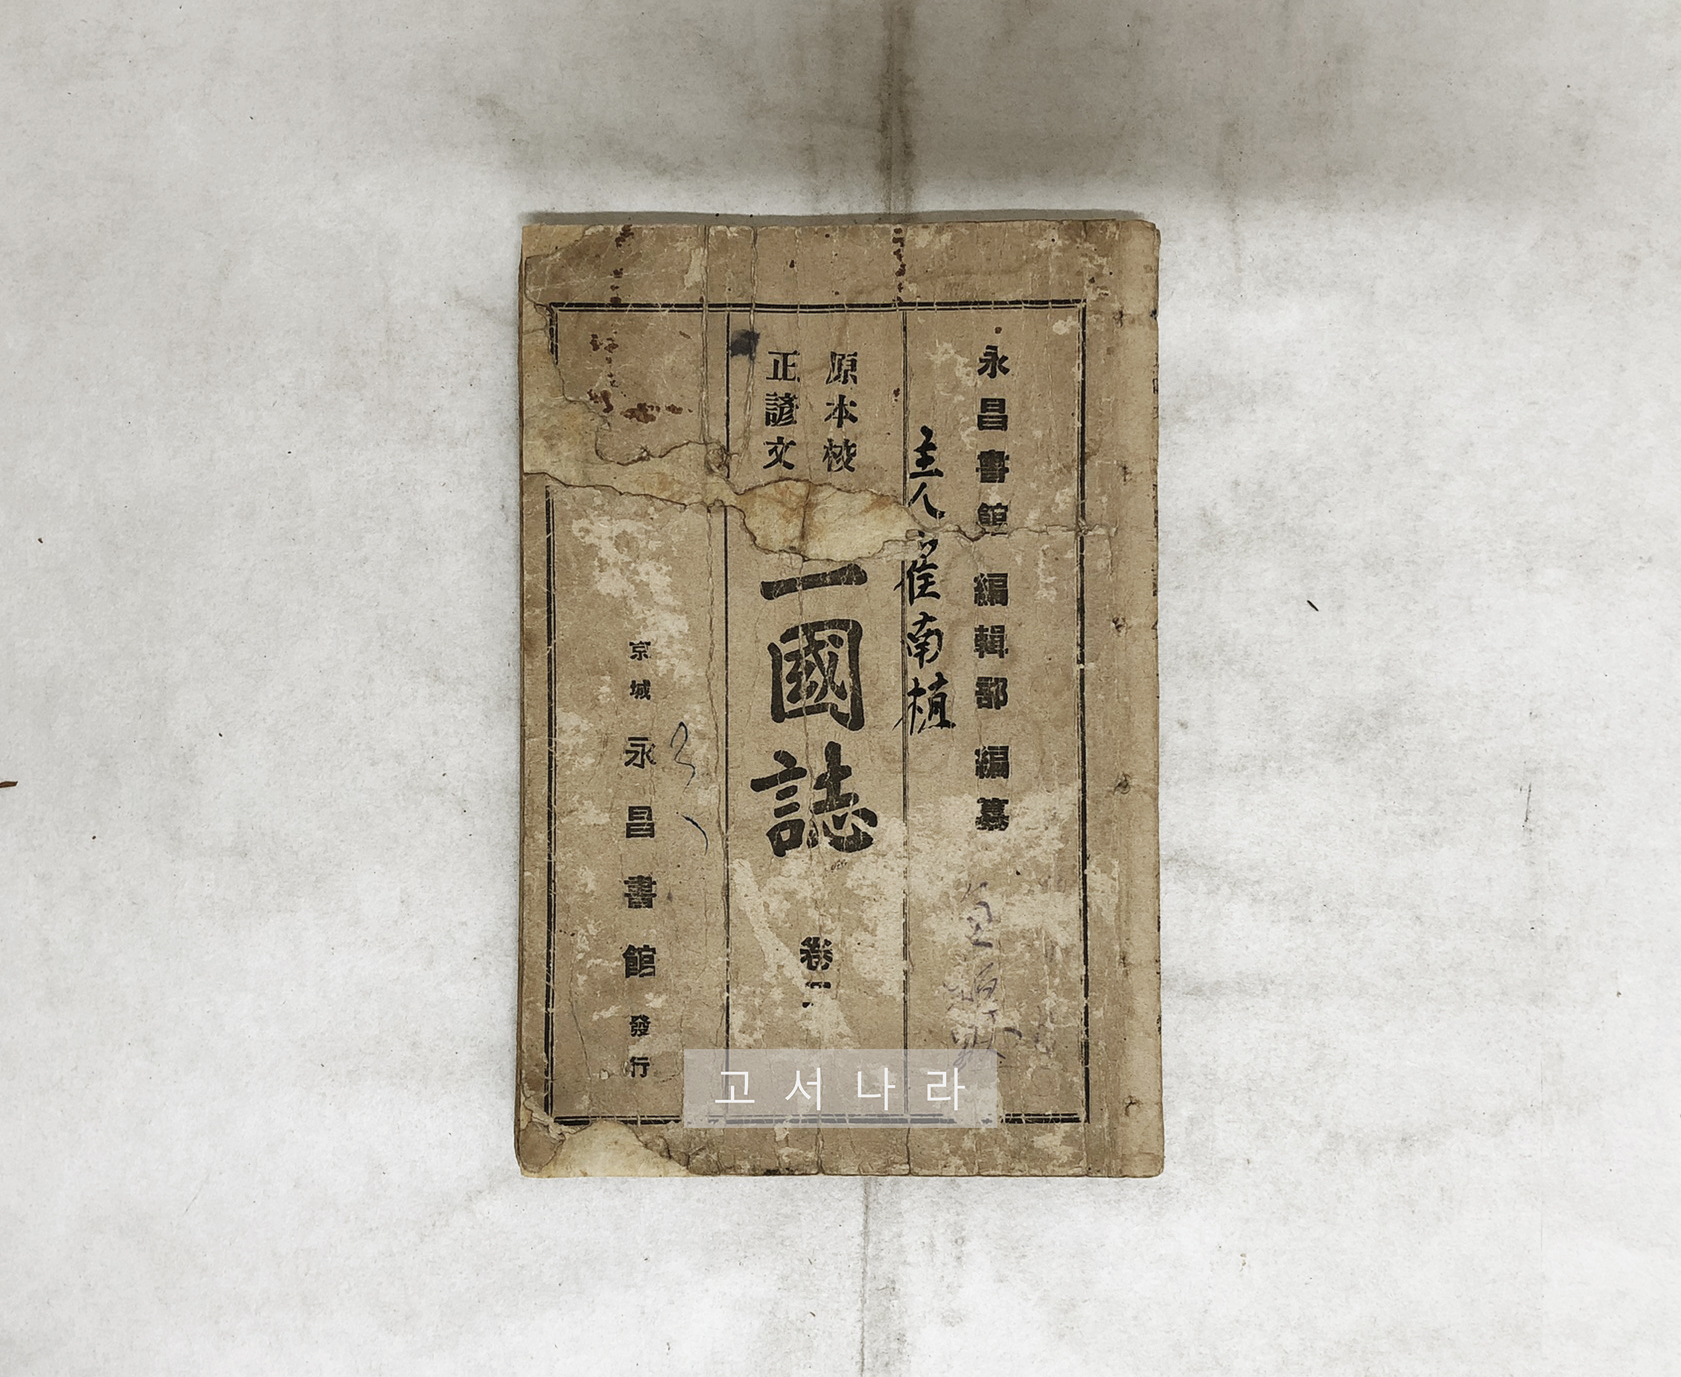 永昌書館 編輯部 編纂
主人崔南植
原本校
正諺文
國誌
卷
京城 永昌書館 發行
고서나라